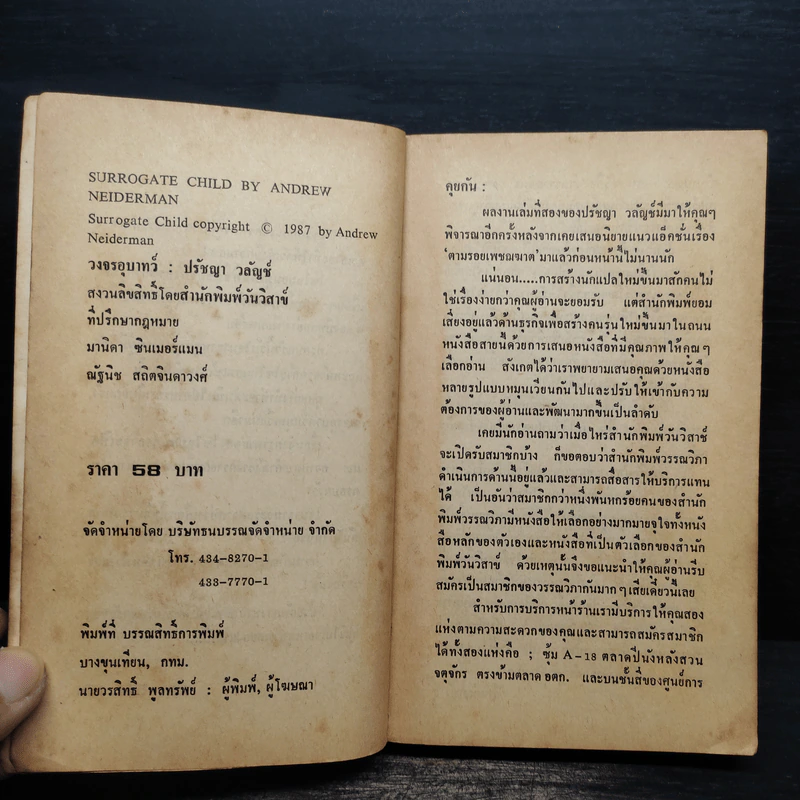 SURROGATE CHILD BY ANDREW
NEIDERMAN
Surrogate Child copyright © 1987 by Andrew
Neiderman
วงจรอุบาทว์ : ปรัชญา วลัญช์
สงวนลิขสิทธิ์โดยสำนักพิมพ์วันวิสาข์
ที่ปรึกษากฎหมาย
มานิดา ซินเมอร์แมน
ณัฐนิช สถิตจินดาวงศ์
ราคา 58 บาท
จัดจำหน่ายโดย บริษัทธนบรรณจัดจำหน่าย จำกัด
โทร. 434-8270-1
433-7770-1
พิมพ์ที่ บรรณสิทธิ์การพิมพ์
บางขุนเทียน, กทม.
นายวรสิทธิ์ พูลทรัพย์ : ผู้พิมพ์, ผู้โฆษณา
คุยกัน :
ผลงานเล่มที่สองของปรัชญา วลัญช์มีมาให้คุณๆ
พิจารณาอีกครั้งหลังจากเคยเสนอนิยายแนวแอ็คชั่นเรื่อง
'ตามรอยเพชฌฆาต' มาแล้วก่อนหน้านี้ไม่นานนัก
แน่นอน.....การสร้างนักแปลใหม่ขึ้นมาสักคนไม่
ใช่เรื่องง่ายกว่าคุณผู้อ่านจะยอมรับ แต่สำนักพิมพ์ยอม
เสี่ยงอยู่แล้วด้านธุรกิจเพื่อสร้างคนรุ่นใหม่ขึ้นมาในถนน
หนังสือสายนี้ด้วยการเสนอหนังสือที่มีคุณภาพให้คุณๆ
เลือกอ่าน สังเกตได้ว่าเราพยายามเสนอคุณด้วยหนังสือ
หลายรูปแบบหมุนเวียนกันไปและปรับให้เข้ากับความ
ต้องการของผู้อ่านและพัฒนามากขึ้นเป็นลำดับ
เคยมีนักอ่านถามว่าเมื่อไหร่สำนักพิมพ์วันวิสาข์
จะเปิดรับสมาชิกบ้าง ก็ขอตอบว่าสำนักพิมพ์วรรณวิภา
ดำเนินการด้านนี้อยู่แล้วและสามารถสื่อสารให้บริการแทน
ได้ เป็นอันว่าสมาชิกกว่าหนึ่งพันหกร้อยคนของสำนัก
พิมพ์วรรณวิภามีหนังสือให้เลือกอย่างมากมายจุใจทั้งหนัง
สือหลักของตัวเองและหนังสือที่เป็นตัวเลือกของสำนัก
พิมพ์วันวิสาข์ ด้วยเหตุนั้นจึงขอแนะนำให้คุณผู้อ่านรีบ
สมัครเป็นสมาชิกของวรรณวิภากันมากๆ เสียเดี๋ยวนี้เลย
สำหรับการบริการหน้าร้านเรามีบริการให้คุณสอง
แห่งตามความสะดวกของคุณและสามารถสมัครสมาชิก
ได้ทั้งสองแห่งคือ ; ซุ้ม A-18 ตลาดปีนังหลังสวน
จตุจักร ตรงข้ามตลาด อตก. และบนชั้นสี่ของศูนย์การ